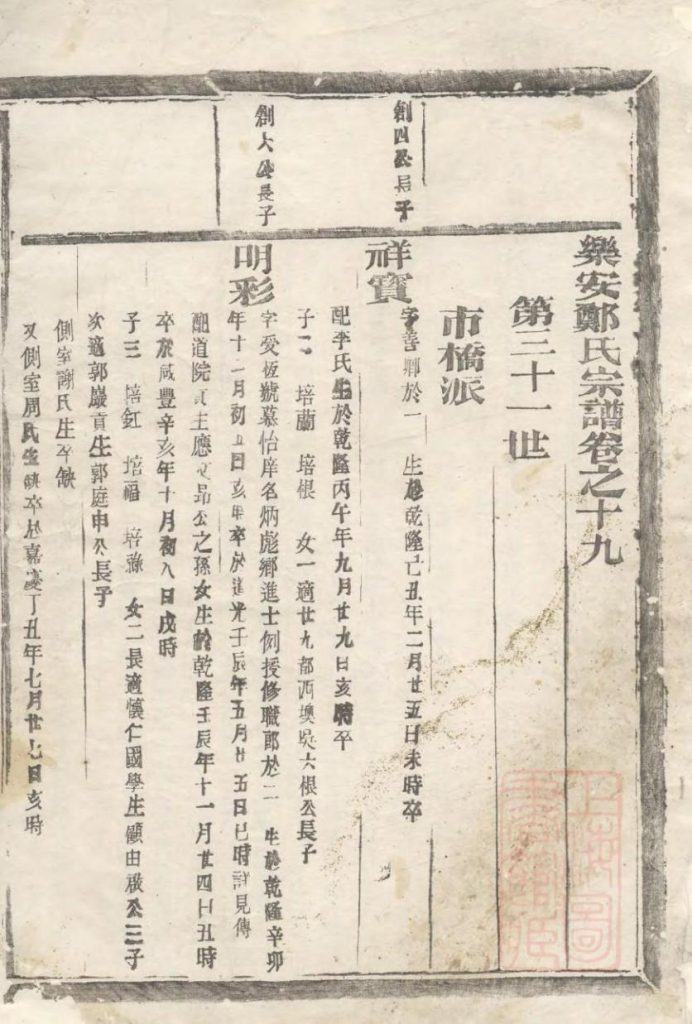 樂安鄭氏宗譜卷之十九
第三十一世
市橋派
創四公長子
祥寶
字善卿於一 生於乾隆己丑年二月廿五日未時卒
配李氏生於乾隆丙午年九月廿九日亥時卒
子二 培蘭 培根 女一適廿九都西墺吳大根公長子
創大公長子
明彩
字受恆號慕怡庠名炳彪鄉進士例授修職郎於二 生於乾隆辛卯
年十二月初五日亥時卒於道光壬辰年五月廿五日巳時詳見傳
配道院貢生應文昂公之孫女生於乾隆壬辰年十一月廿四日丑時
卒於咸豐辛亥年十月初八日戌時
子三 培釭 培福 培祿 女二長適懷仁國學生顧由啟公三子
次適郭巖貢生郭庭申公長子
側室謝氏生卒缺
又側室周氏生缺卒於嘉慶丁丑年七月廿七日亥時
上海圖書館